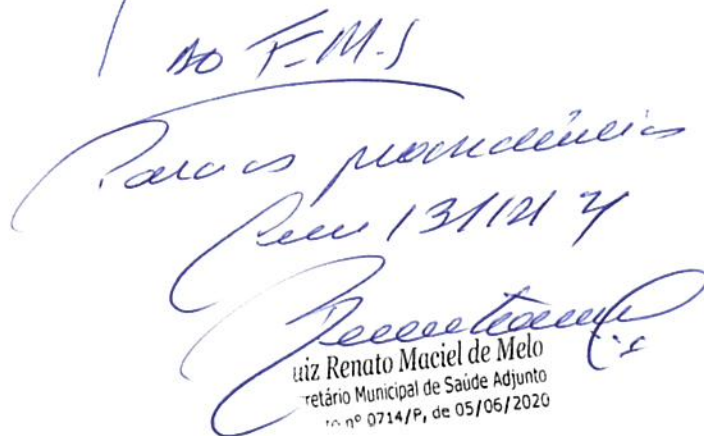 Ao F.M.S
Para as providências
Em 13/12/21
uiz Renato Maciel de Melo
retário Municipal de Saúde Adjunto
to nº 0714/P, de 05/06/2020